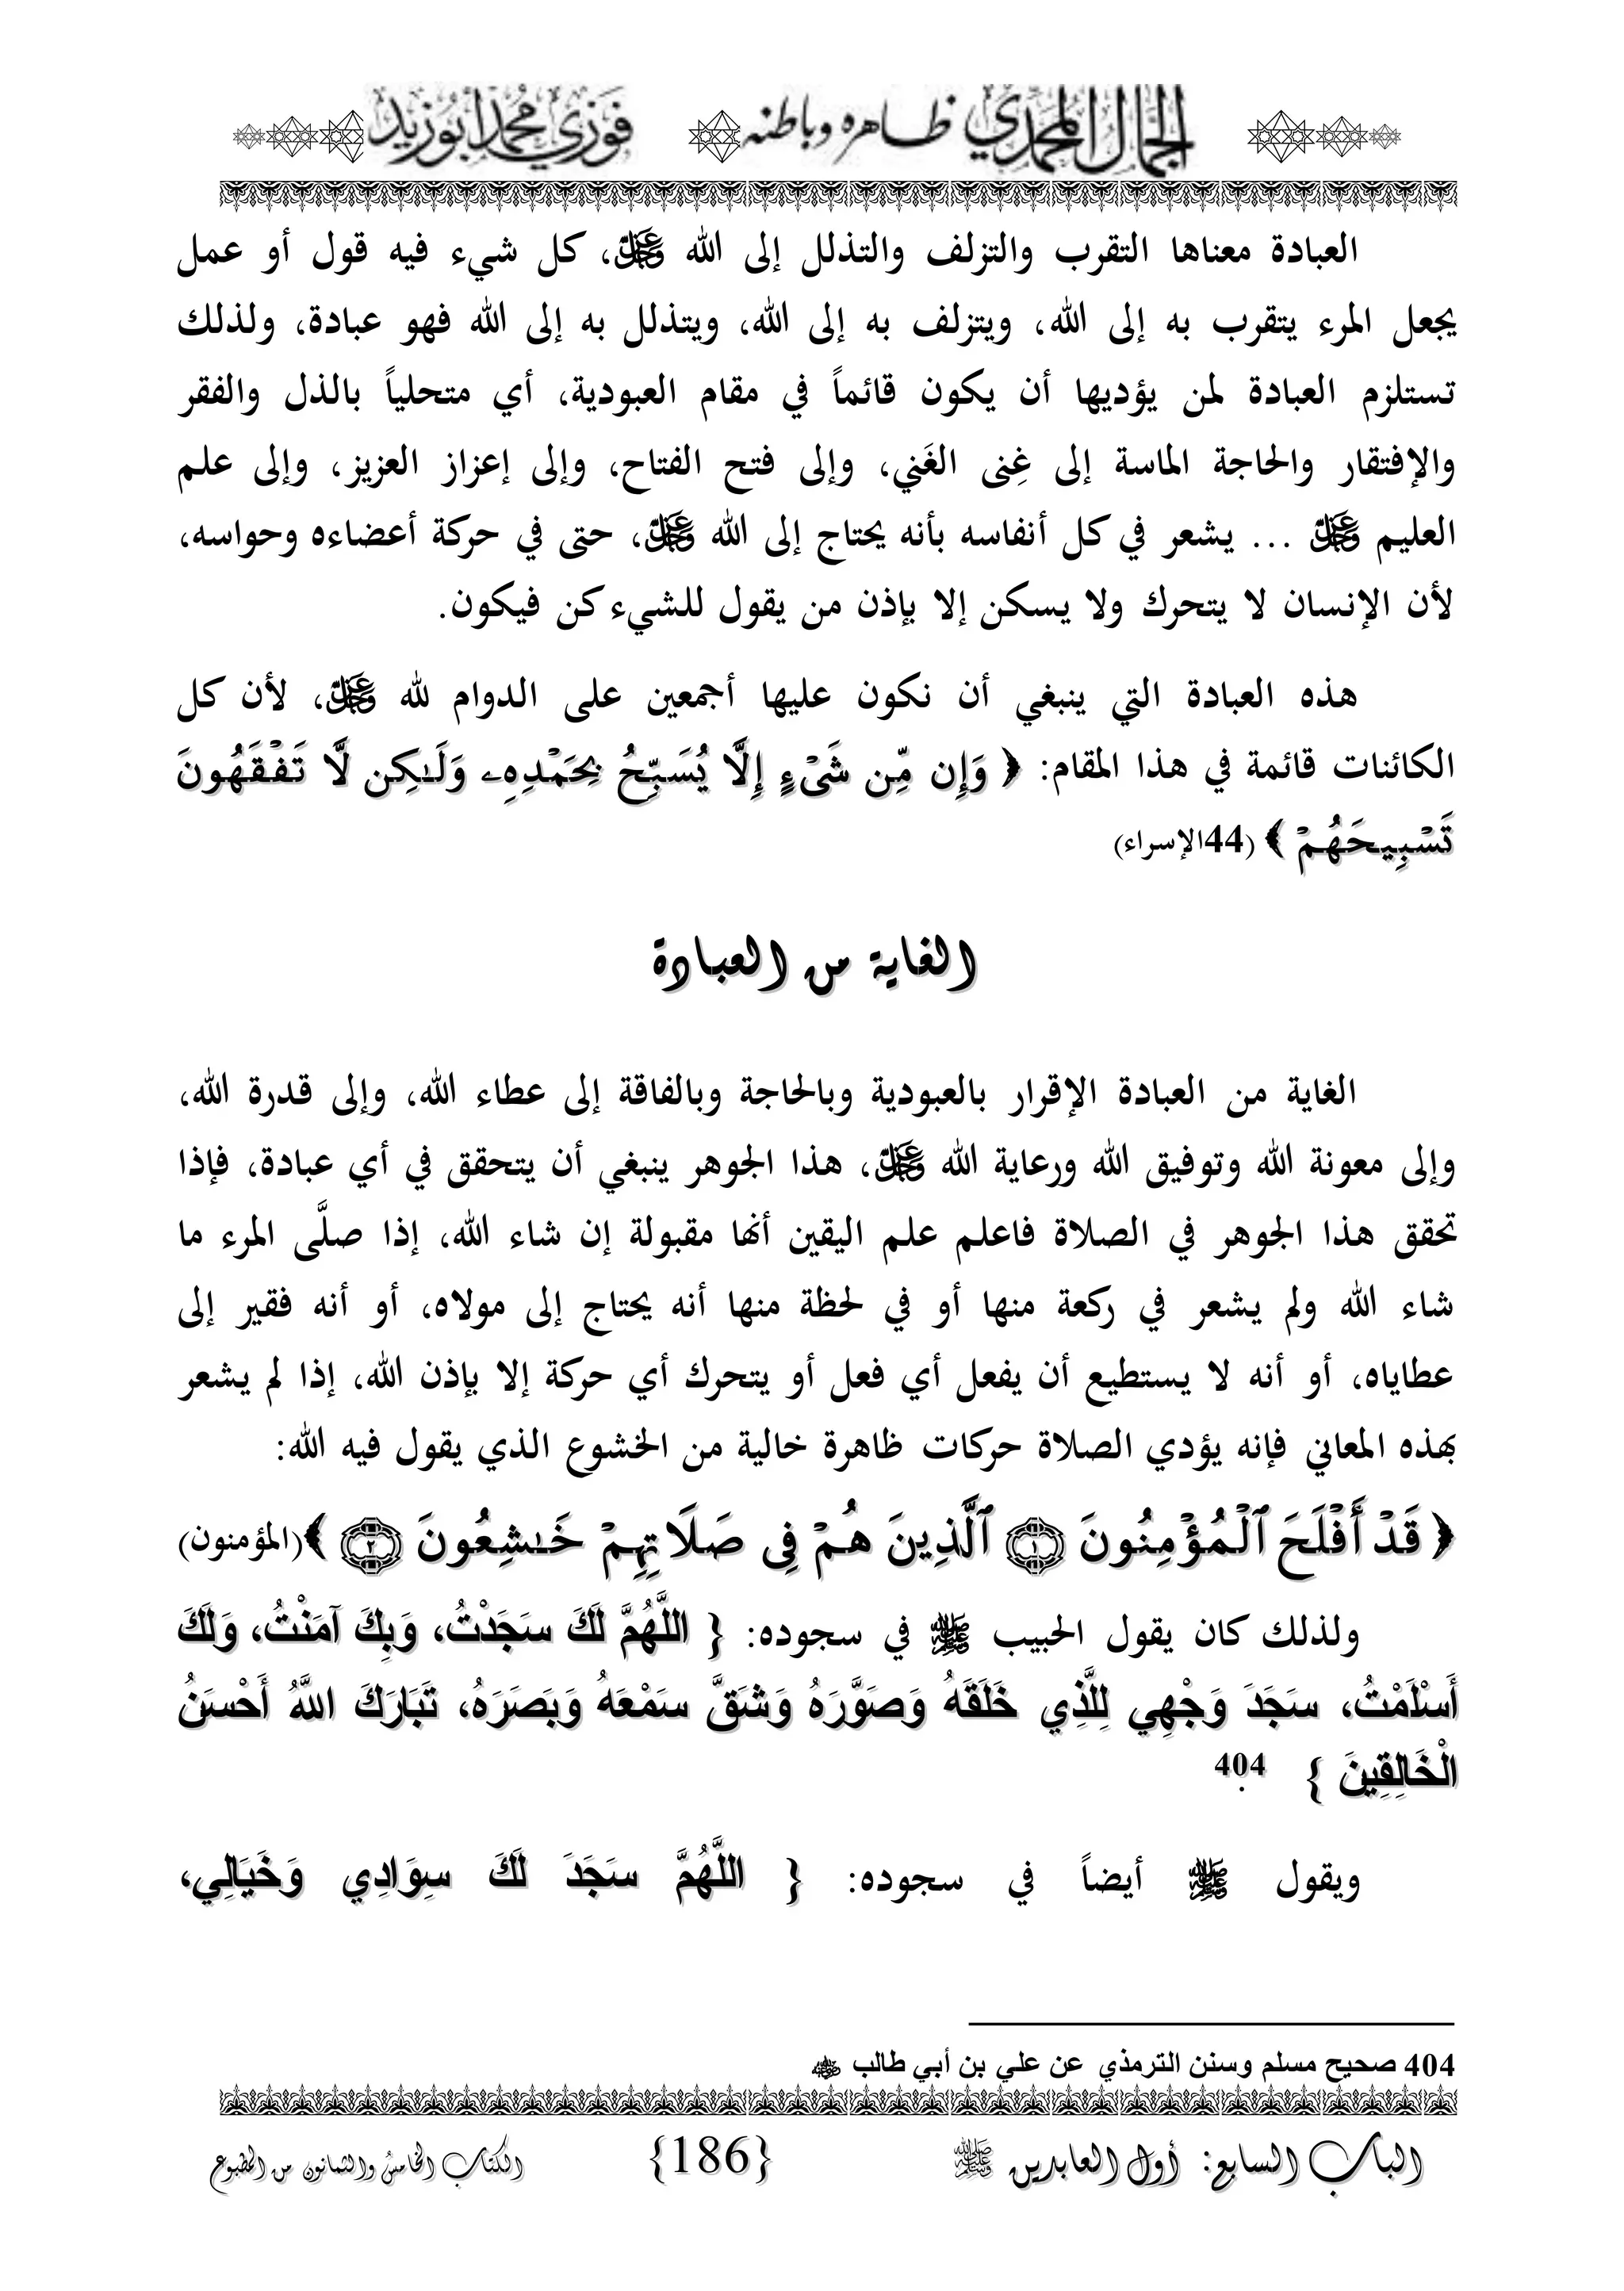 الجمال المحمدي ظاهره وباطنه فوزي محمد أبوزيد
العبادة معناها التقرب والتزلف والتذلل إلى الله عز وجل، كل شيء فيه قول أو عمل
يجعل المرء يتقرب به إلى الله، ويتزلف به إلى الله، ويتذلل به إلى الله فهو عبادة، ولذلك
تستلزم العبادة لمن يؤديها أن يكون قائماً في مقام العبودية، أي متحلياً بالذل والفقر
والإفتقار والحاجة الماسة إلى غِنى الغَني، وإلى فتح الفتاح، وإلى إعزاز العزيز، وإلى علم
العليم عز وجل ... يشعر في كل أنفاسه بأنه يحتاج إلى الله عز وجل، حتى في حركة أعضاءه وحواسه،
لأن الإنسان لا يتحرك ولا يسكن إلا بإذن من يقول للشيء كن فيكون.
هذه العبادة التي ينبغي أن نكون عليها أجمعين على الدوام لله عز وجل، لأن كل
الكائنات قائمة في هذا المقام: ﴿ وَإِن مِّن شَىْءٍ إِلَّا يُسَبِّحُ بِحَمْدِهِۦ وَلَـٰكِن لَّا تَفْقَهُونَ
تَسْبِيحَهُمْ ﴾ (44الإسراء)
الغاية من العبادة
الغاية من العبادة الإقرار بالعبودية وبالحاجة وبالفاقة إلى عطاء الله، وإلى قدرة الله،
وإلى معونة الله وتوفيق الله ورعاية الله عز وجل، هذا الجوهر ينبغي أن يتحقق في أي عبادة، فإذا
تحقق هذا الجوهر في الصلاة فاعلم علم اليقين أنها مقبولة إن شاء الله، إذا صلَّى المرء ما
شاء الله ولم يشعر في ركعة منها أو في لحظة منها أنه يحتاج إلى مولاه، أو أنه فقير إلى
عطاياه، أو أنه لا يستطيع أن يفعل أي فعل أو يتحرك أي حركة إلا بإذن الله، إذا لم يشعر
بهذه المعاني فإنه يؤدي الصلاة حركات ظاهرة خالية من الخشوع الذي يقول فيه الله:
﴿ قَدْ أَفْلَحَ ٱلْمُؤْمِنُونَ ١ ٱلَّذِينَ هُمْ فِى صَلَاتِهِمْ خَـٰشِعُونَ ٢ ﴾(المؤمنون)
ولذلك كان يقول الحبيب ﷺ في سجوده: { اللَّهُمَّ لَكَ سَجَدْتُ، وَبِكَ آمَنْتُ، وَلَكَ
أَسْلَمْتُ، سَجَدَ وَجْهِي لِلَّذِي خَلَقَهُ وَصَوَّرَهُ وَشَقَّ سَمْعَهُ وَبَصَرَهُ، تَبَارَكَ اللَّهُ أَحْسَنُ
الْخَالِقِينَ } 404.
ويقول ﷺ أيضاً في سجوده: { اللَّهُمَّ سَجَدَ لَكَ سِوَادِي وَخَيَالِي،
404 صحيح مسلم وسنن الترمذي عن علي بن أبي طالب رضي الله عنه
الباب السابع: أول العابدين ﷺ {186} الكتاب الخامس والثمانون من المطبوع